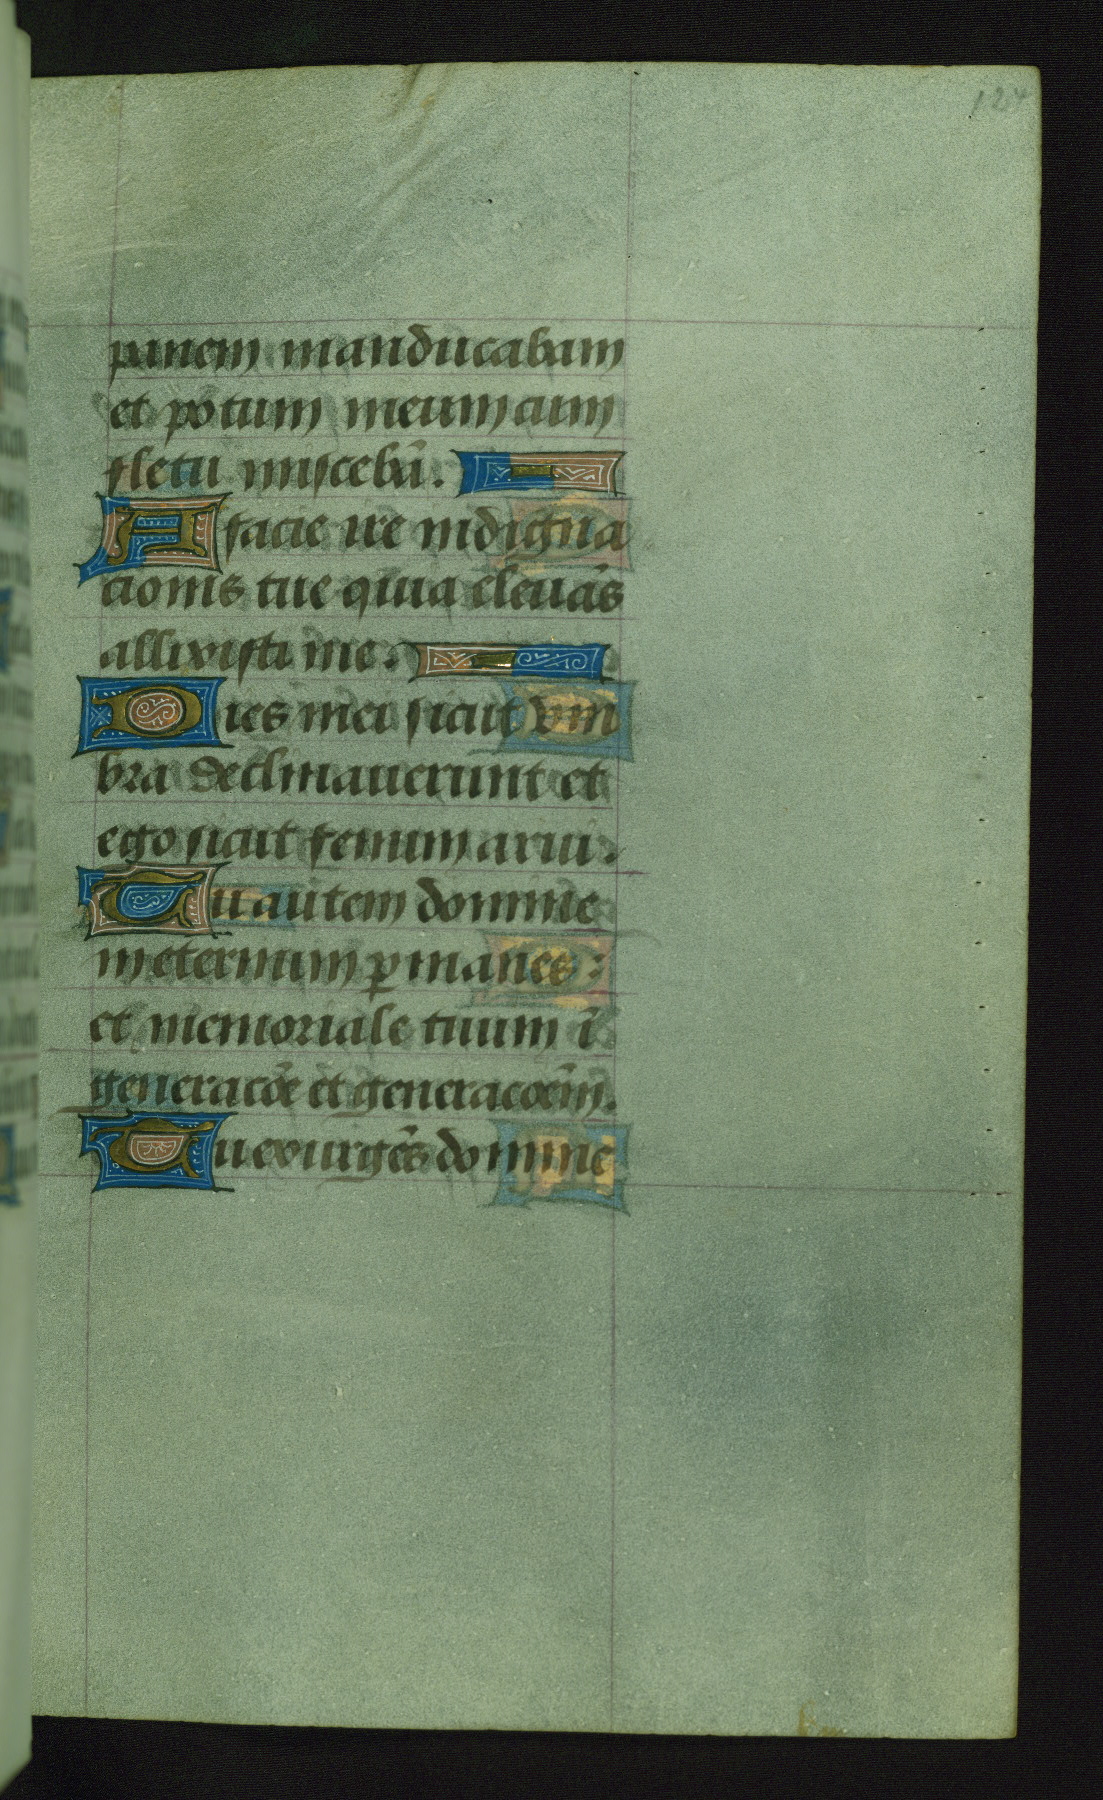 124
panem manducabam
et potum meum cum
fletu miscebā.
A facie ire indigna
cionis tue quia elevās
allixisti me.
Dies mei sicut vm
bra declinaverunt et
ego sicut fenum arui.
Tu autem domine
in eternum ꝑmanes:
et memoriale tuum ī
generacōe et generacoēm.
Tu exurgēs domine